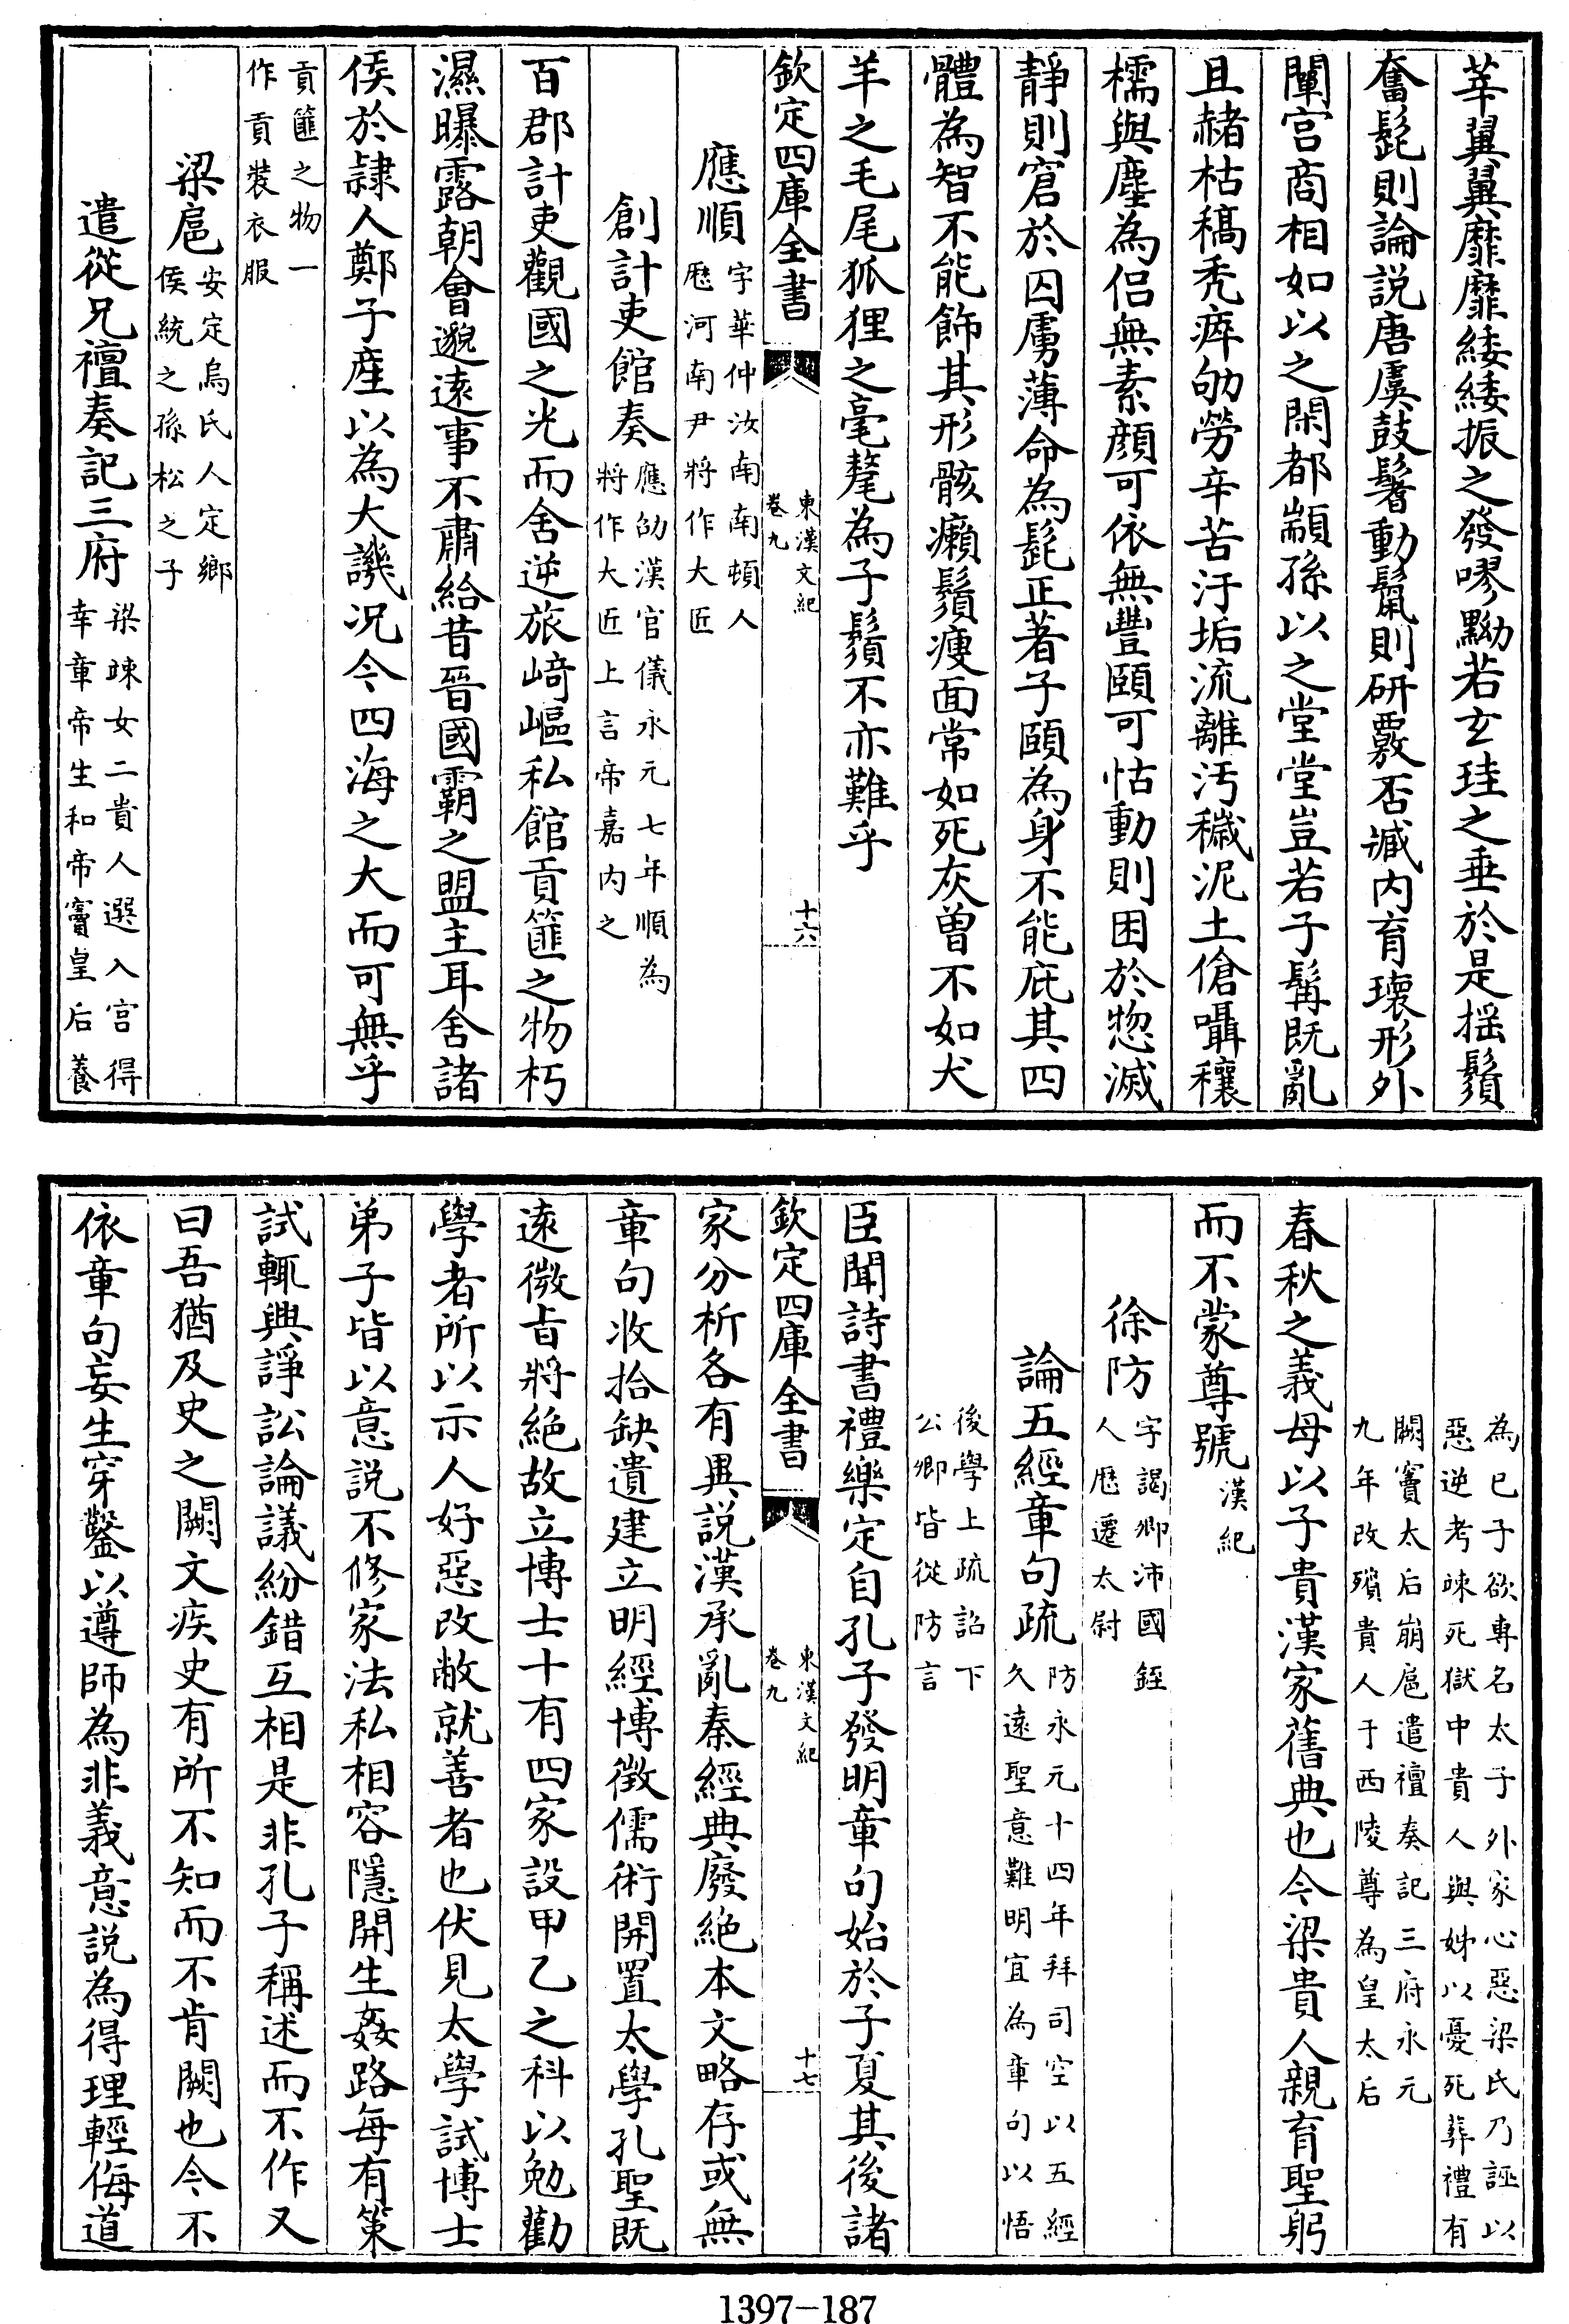 莘翼翼靡靡綏綏振之發㗀黝若玄珪之垂於是摇鬚
奮髭則論説唐虞鼓鬐動鬣則研覈否臧内育瓌形外
闡宫商相如以之閑都顓孫以之堂堂豈若子髯既亂
且赭枯槁秃瘁劬勞辛苦汙垢流離汚穢泥土傖囁穰
檽與塵為侣無素顔可依無豐頤可怙動則困於惣滅
靜則窘於囚虜薄命為髭正著子頤為身不能庇其四
體為智不能飾其形骸癩鬚瘦面常如死灰曾不如犬
羊之毛尾狐狸之毫氂為子鬚不亦難乎
欽定四庫全書
東漢文紀
卷九
十六
應順
字華仲汝南南頓人
厯河南尹將作大匠
創計吏館奏
應劭漢官儀永元七年順為
將作大匠上言帝嘉内之
百郡計吏觀國之光而舍逆旅﨑嶇私館貢篚之物朽
濕曝露朝會邈遠事不肅給昔晉國霸之盟主耳舍諸
侯於隷人鄭子産以為大譏况今四海之大而可無乎
貢篚之物一
作貢裝衣服
梁扈
安定烏氏人定鄉
侯統之孫松之子
遣從兄禫奏記三府
梁竦女二貴人選入宫得
幸章帝生和帝竇皇后養
為已子欲専名太子外家心惡梁氏乃誣以
惡逆考竦死獄中貴人與姊以憂死葬禮有
闕竇太后崩扈遣禫奏記三府永元
九年改殯貴人于西陵尊為皇太后
春秋之義母以子貴漢家舊典也今梁貴人親育聖躬
而不蒙尊號
漢紀
徐防
字謁卿沛國銍
人厯遷太尉
論五經章句疏
防永元十四年拜司空以五經
久遠聖意難明宜為章句以悟
後學上疏詔下
公卿皆從防言
臣聞詩書禮樂定自孔子發明章句始於子夏其後諸
欽定四庫全書
東漢文紀
卷九
十七
家分析各有異説漢承亂秦經典廢絶本文略存或無
章句收拾缺遺建立明經博徴儒術開置太學孔聖既
遠微㫖將絶故立博士十有四家設甲乙之科以勉勸
學者所以示人好惡改敝就善者也伏見太學試博士
弟子皆以意説不修家法私相容隱開生姦路每有策
試輒興諍訟論議紛錯互相是非孔子稱述而不作又
曰吾猶及史之闕文疾史有所不知而不肯闕也今不
依章句妄生穿鑿以遵師為非義意説為得理輕侮道
1397-187